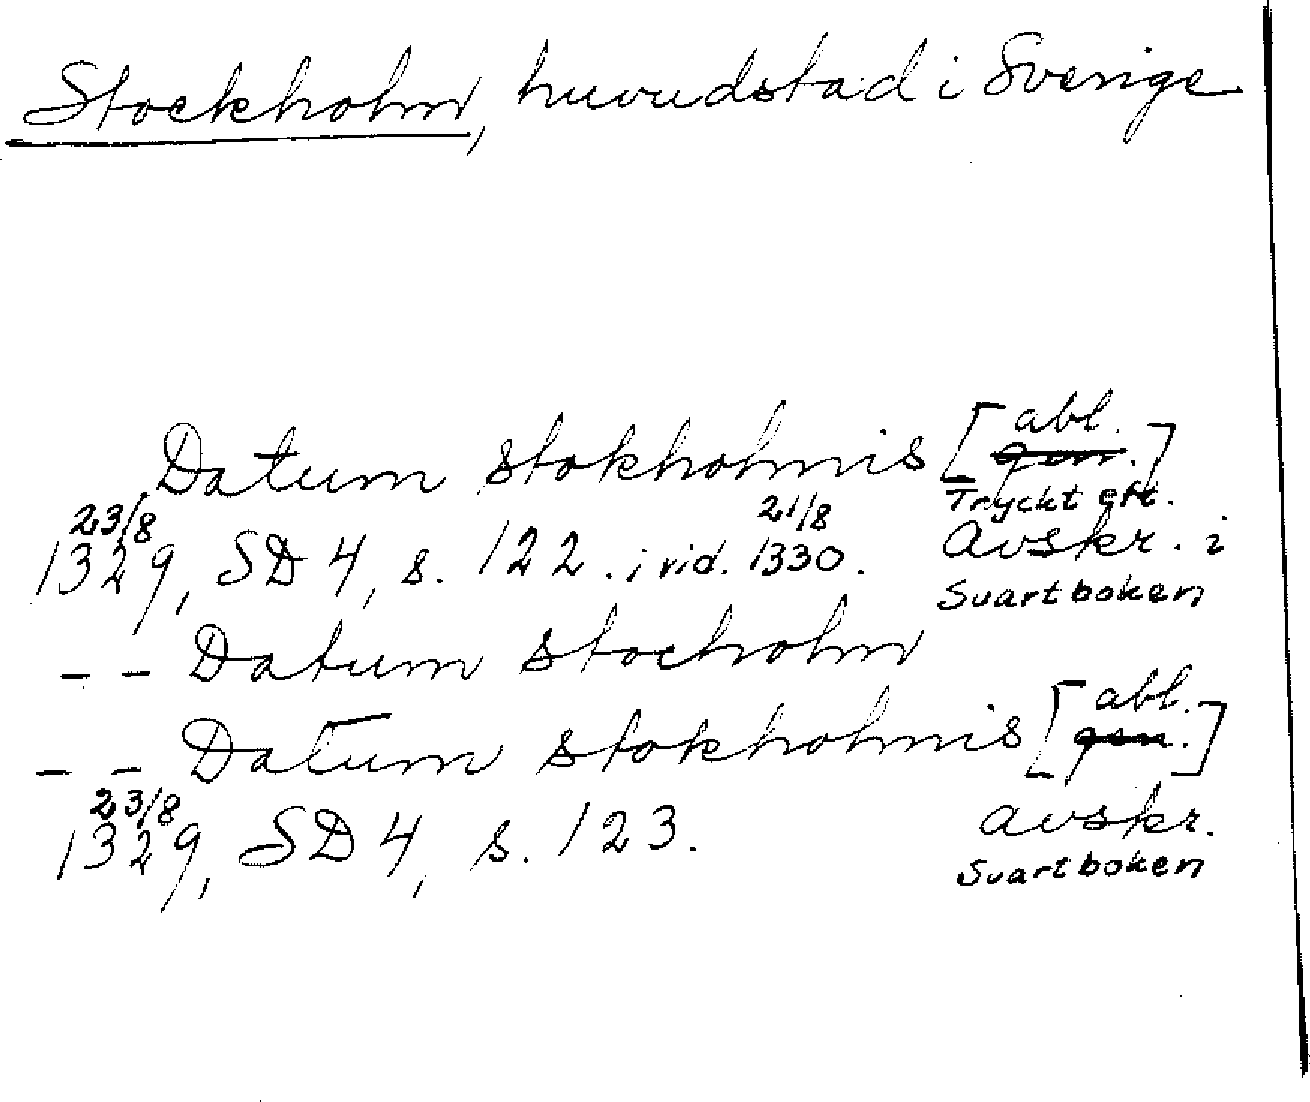 Stockholm, huvudstad i Sverige
Datum stokholmis [abl. gen.]
Tryckt eft.
23/8 21/8
1329, SD 4, s. 122. i vid. 1330. Avskr. i
Svartboken
- - Datum stocholm
- - Datum stokholmis [abl. gen.]
23/8
1329, SD 4, s. 123. Avskr.
Svartboken